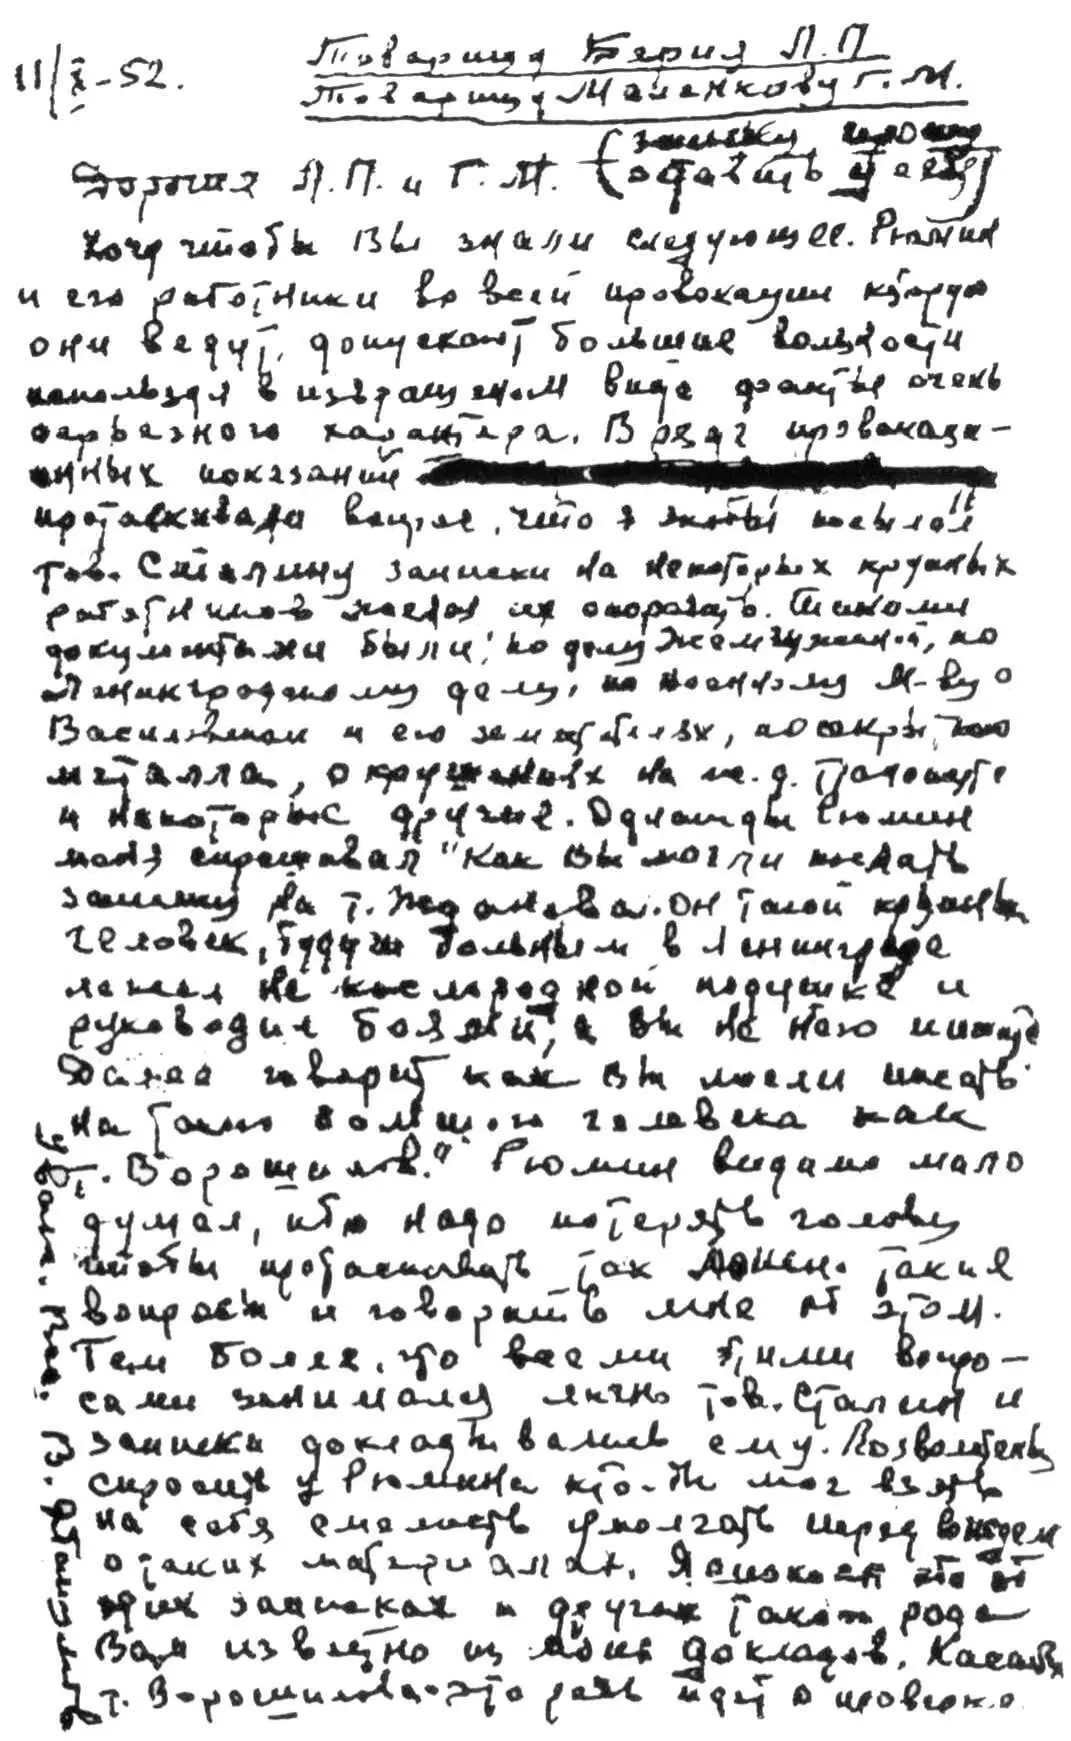 11/X-52.
Товарищу Берия Л.П
Товарищу Маленкову Г.М.
(записку прошу
оставить у себя)
Дорогие Л.П. и Г.М.
Хочу чтобы Вы знали следующее. Рюмин
и его работники во всей провокации которую
они ведут, допускают большие вольности
используя в извращеном виде факты очень
серьезного характера. В ряде провокаци-
онных показаний
протаскивали вопрос, что я якобы посылал
тов. Сталину записки на некоторых крупных
работников желая их опорочить. Такими
документами были: по делу Жемчужиной, по
Ленинградскому делу, по военному М-ву о
Василевском и его заместителях, по
металла, о крушениях на ж.д. транспорте
и некоторые другие. Однажды Рюмин
меня спрашивал "Как Вы могли послать
записку на т. Жданова. Он такой крупный
человек, будучи больным в Ленинграде
лежал на кислородной подушке и
руководил боями, а Вы на него пишете
Далее говорит как Вы могли писать
на такого большого человека как
т. Ворошилов." Рюмин видимо мало
думал, ибо надо потерять голову
чтобы протаскивать так такие
вопросы и говорить мне об этом.
Тем более, что всеми этими вопро-
сами занимался лично тов. Сталин и
записки докладывались ему. Позвольте
спросить у Рюмина кто-же мог взять
на себя смелость умолчать перед вождем
о таких материалах. Я что об
этих записках и других такого рода
Вам известно из моих докладов. Касаясь
т. Ворошилова-это речь идет о проверке